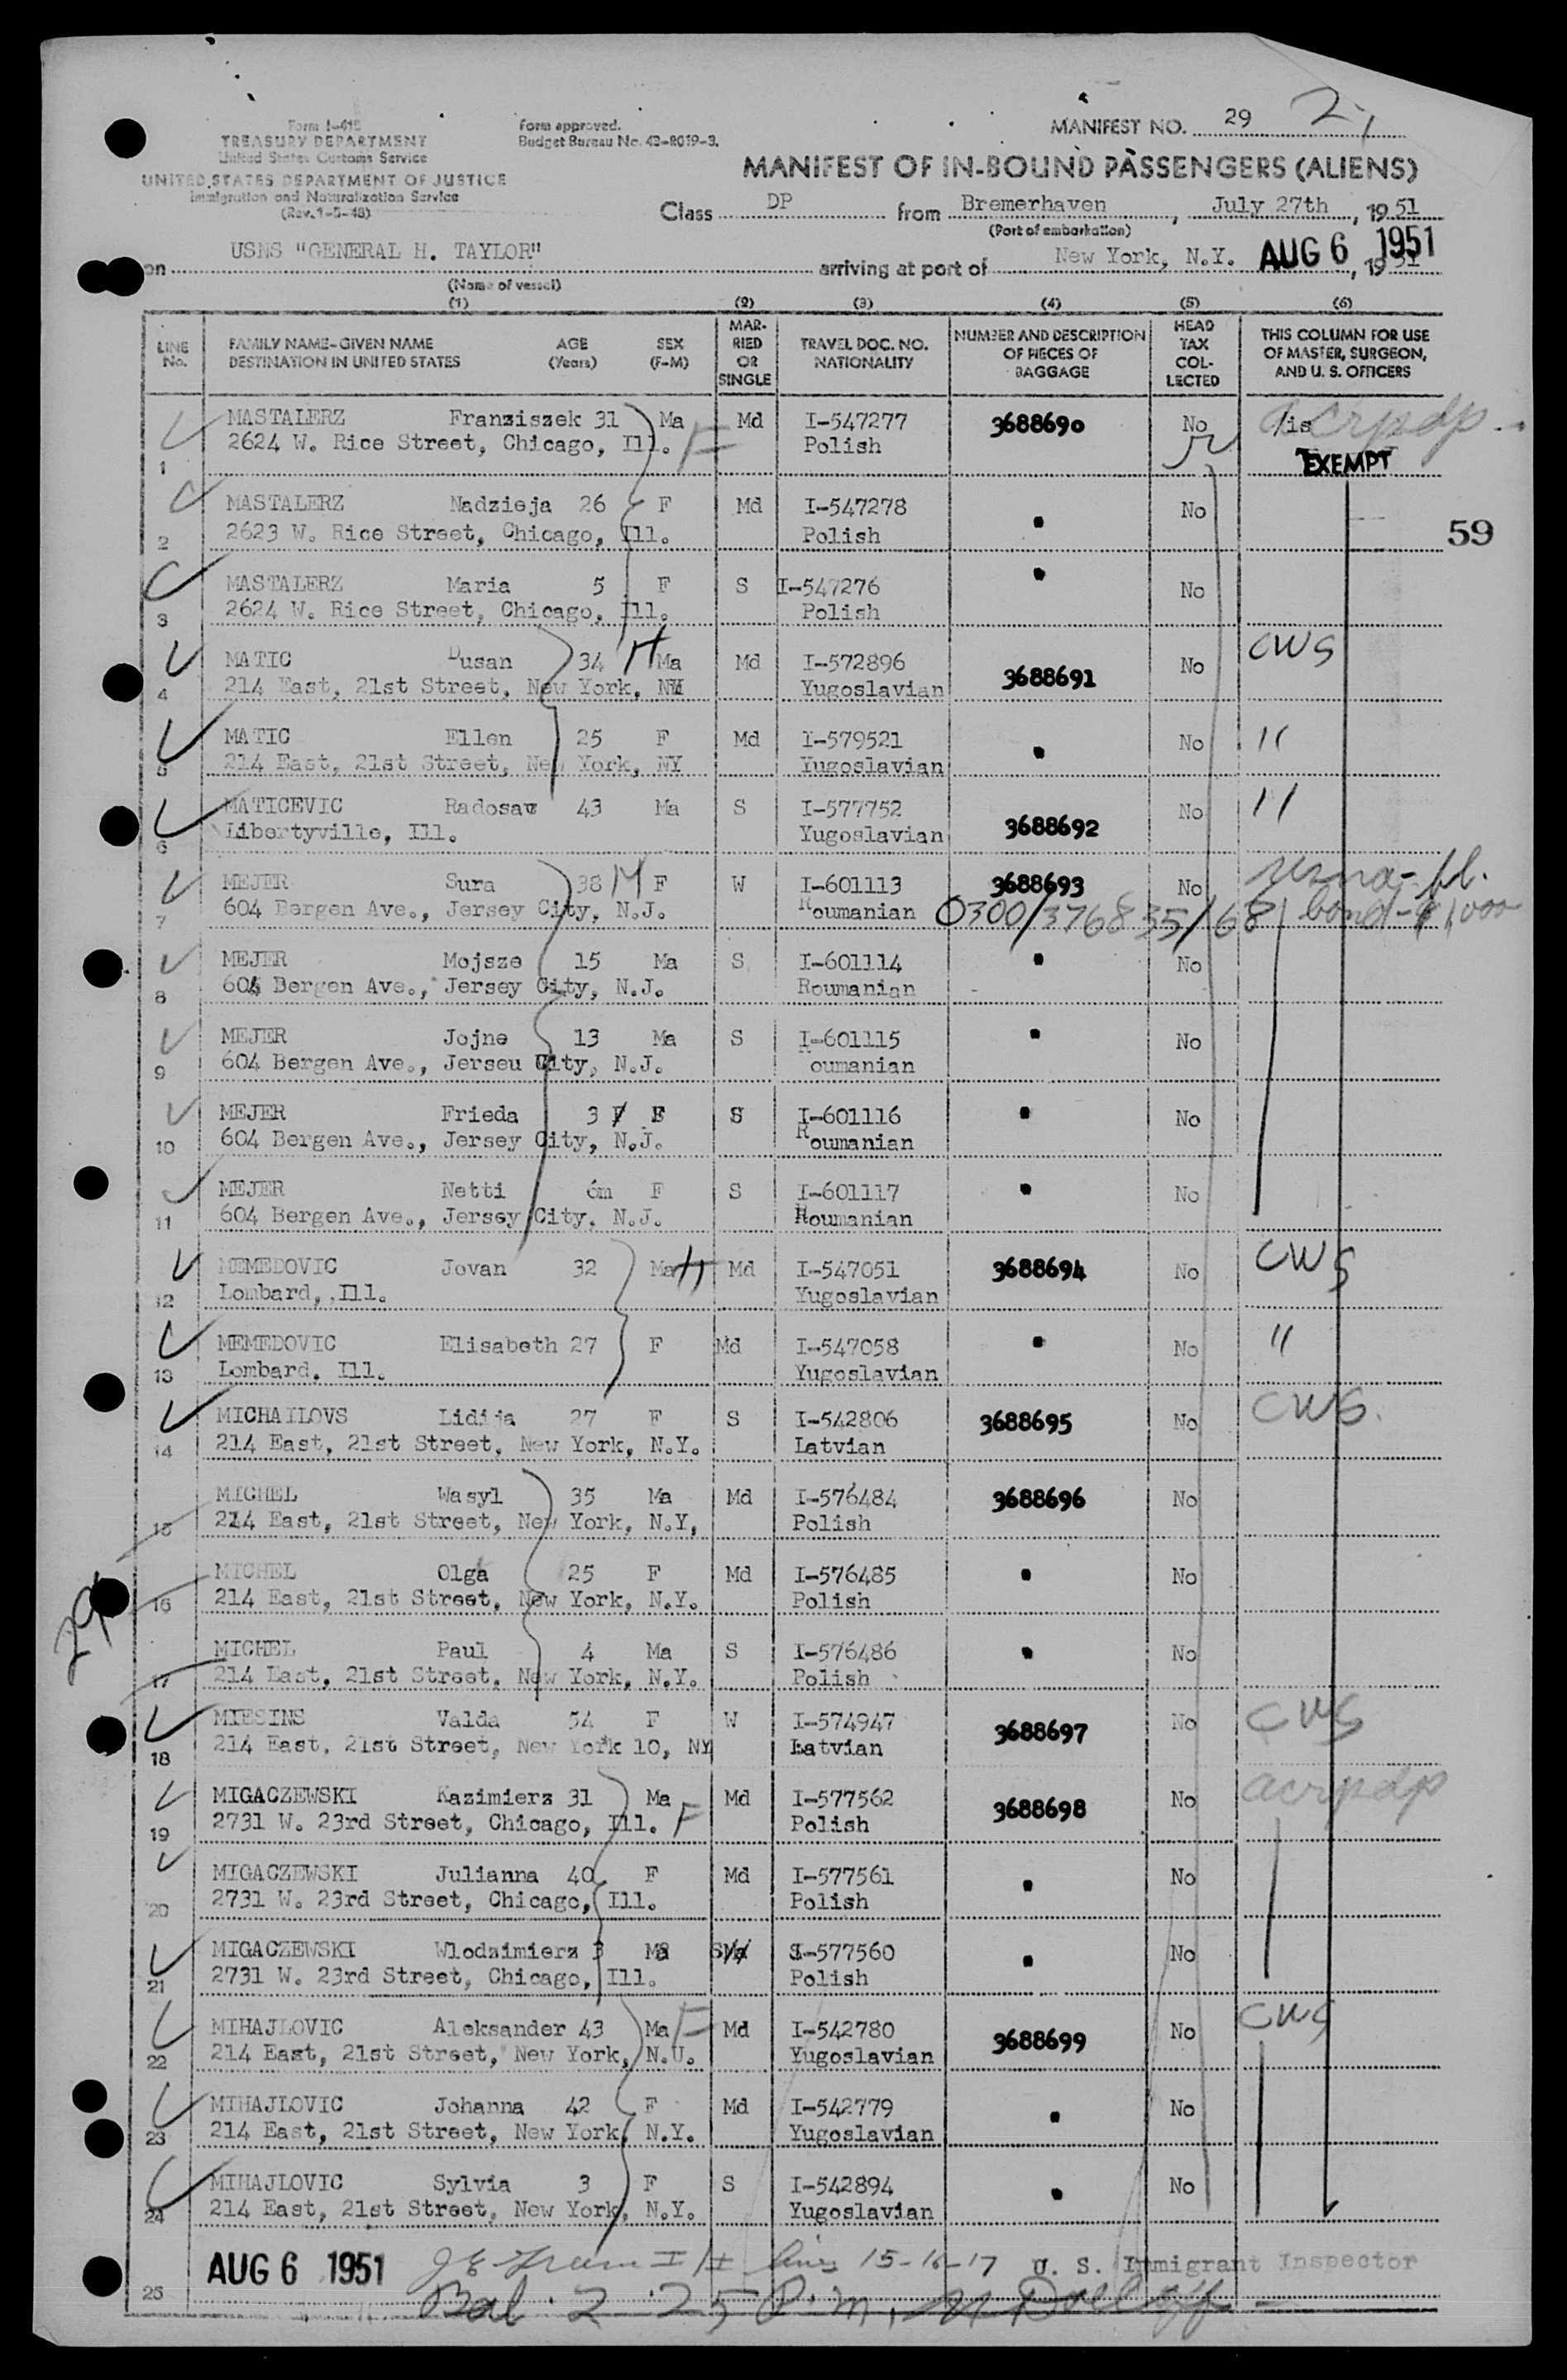 Form I-415
TREASURY DEPARTMENT
United States Customs Service
UNITED STATES DEPARTMENT OF JUSTICE
Immigration and Naturalization Service
(Rev. 1-5-48)
Form approved.
Budget Bureau No. 43-R019-3.
MANIFEST NO. 29
MANIFEST OF IN-BOUND PASSENGERS (ALIENS)
Class DP from Bremerhaven, July 27th, 1951
(Port of embarkation)
on USNS "GENERAL H. TAYLOR" arriving at port of New York, N.Y. AUG 6 1951, 1951
(Name of vessel)
(1) (2) (3) (4) (5) (6)
LINE No. FAMILY NAME-GIVEN NAME DESTINATION IN UNITED STATES AGE (Years) SEX (F-M) MARRIED OR SINGLE TRAVEL DOC. NO. NATIONALITY NUMBER AND DESCRIPTION OF PIECES OF BAGGAGE HEAD TAX COLLECTED THIS COLUMN FOR USE OF MASTER, SURGEON, AND U. S. OFFICERS
MASTALERZ Franziszek 31 Ma Md I-547277 3688690 No acrpdp
1 2624 W. Rice Street, Chicago, Ill. F Polish EXEMPT
MASTALERZ Nadzieja 26 F Md I-547278 No
2 2623 W. Rice Street, Chicago, Ill. Polish
59
MASTALERZ Maria 5 F S I-547276 No
3 2624 W. Rice Street, Chicago, Ill. Polish
MATIC Dusan 34 H Ma Md I-572896 3688691 No CWS
4 214 East, 21st Street, New York, NY Yugoslavian
MATIC Ellen 25 F Md I-579521 No "
5 214 East, 21st Street, New York, NY Yugoslavian
MATICEVIC Radosaw 43 Ma S I-577752 3688692 No "
6 Libertyville, Ill. Yugoslavian
MEJER Sura 38 H F W I-601113 3688693 No usna-pl.
7 604 Bergen Ave., Jersey City, N.J. Roumanian 0300/376835/68 bond-$1,000
MEJER Mojsze 15 Ma S I-601114 No
8 604 Bergen Ave., Jersey City, N.J. Roumanian
MEJER Jojne 13 Ma S I-601115 No
9 604 Bergen Ave., Jerseu City, N.J. Roumanian
MEJER Frieda 3 F F S I-601116 No
10 604 Bergen Ave., Jersey City, N.J. Roumanian
MEJER Netti 6m F S I-601117 No
11 604 Bergen Ave., Jersey City. N.J. Roumanian
MEMEDOVIC Jovan 32 Ma H Md I-547051 3688694 No CWS
12 Lombard, Ill. Yugoslavian
MEMEDOVIC Elisabeth 27 F Md I-547058 No "
13 Lombard. Ill. Yugoslavian
MICHAILOVS Lidija 27 F S I-542806 3688695 No CWS.
14 214 East, 21st Street, New York, N.Y. Latvian
MICHEL Wasyl 35 Ma Md I-576484 3688696 No
15 214 East, 21st Street, New York, N.Y, Polish
MICHEL Olga 25 F Md I-576485 No
16 214 East, 21st Street, New York, N.Y. Polish
29
MICHEL Paul 4 Ma S I-576486 No
17 214 East, 21st Street, New York, N.Y. Polish
MIESINS Valda 54 F W I-574947 3688697 No CWS
18 214 East, 21st Street, New York 10, NY Latvian
MIGACZEWSKI Kazimierz 31 Ma Md I-577562 3688698 No acrpdp
19 2731 W. 23rd Street, Chicago, Ill. F Polish
MIGACZEWSKI Julianna 40 F Md I-577561 No
20 2731 W. 23rd Street, Chicago, Ill. Polish
MIGACZEWSKI Wlodzimierz 3 Ma S I-577560 No
21 2731 W. 23rd Street, Chicago, Ill. Polish
MIHAJLOVIC Aleksander 43 Ma F Md I-542780 3688699 No CWS
22 214 East, 21st Street, New York, N.U. Yugoslavian
MIHAJLOVIC Johanna 42 F Md I-542779 No
23 214 East, 21st Street, New York, N.Y. Yugoslavian
MIHAJLOVIC Sylvia 3 F S I-542894 No
24 214 East, 21st Street, New York, N.Y. Yugoslavian
AUG 6 1951 lines 15-16-17 U. S. Immigrant Inspector
25 Bal 2 25 P.m.